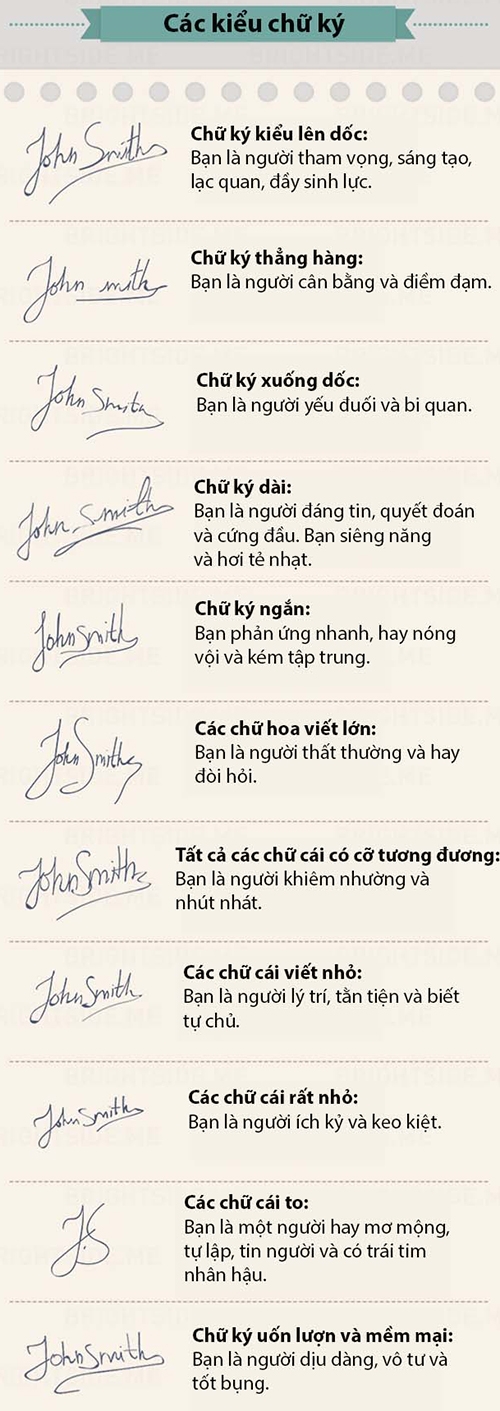 Các kiểu chữ ký
John Smith
Chữ ký kiểu lên dốc:
Bạn là người tham vọng, sáng tạo,
lạc quan, đầy sinh lực.
John smith
Chữ ký thẳng hàng:
Bạn là người cân bằng và điềm đạm.
John Smith
Chữ ký xuống dốc:
Bạn là người yếu đuối và bi quan.
John Smith
Chữ ký dài:
Bạn là người đáng tin, quyết đoán
và cứng đầu. Bạn siêng năng
và hơi tẻ nhạt.
John Smith
Chữ ký ngắn:
Bạn phản ứng nhanh, hay nóng
vội và kém tập trung.
John Smith
Các chữ hoa viết lớn:
Bạn là người thất thường và hay
đòi hỏi.
John Smith
Tất cả các chữ cái có cỡ tương đương:
Bạn là người khiêm nhường và
nhút nhát.
John Smith
Các chữ cái viết nhỏ:
Bạn là người lý trí, tằn tiện và biết
tự chủ.
John Smith
Các chữ cái rất nhỏ:
Bạn là người ích kỷ và keo kiệt.
JS
Các chữ cái to:
Bạn là một người hay mơ mộng,
tự lập, tin người và có trái tim
nhân hậu.
John Smith
Chữ ký uốn lượn và mềm mại:
Bạn là người dịu dàng, vô tư và
tốt bụng.